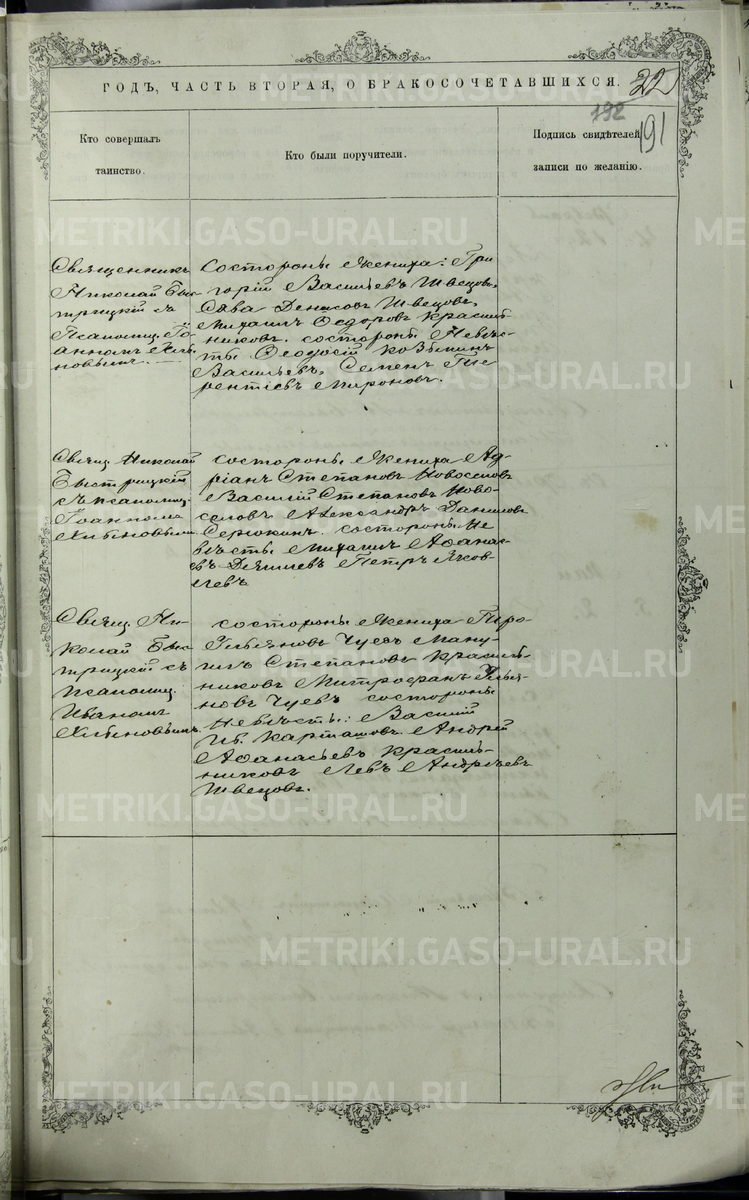 ГОДЪ, ЧАСТЬ ВТОРАЯ, О БРАКОСОЧЕТАВШИХСЯ. 22
192
191
Кто совершалъ
таинство.
Кто были поручители.
Подпись свидѣтелей
записи по желанію.
Священникъ
Николай Быс-
трицкій съ
Псаломщ. Іо-
анномъ Хлы-
новымъ.
Состороны жениха: Гри
горій Васильевъ Швецовъ,
Сава Денисовъ Швецовъ,
Михаилъ Ѳедоровъ Красиль
никовъ. состороны Невѣс-
ты Ѳеодосій Козьминъ
Васильевъ, Семенъ Те-
рентіевъ Мироновъ.
Свящ. Николай
Быстрицкій
съ псаломщ.
Іоанномъ
Хлыновымъ
состороны Жениха Ад-
ріанъ Степановъ Новоселовъ
Василій Степановъ Ново-
селовъ Александръ Даниловъ
состороны Не
вѣсты Михаилъ Аѳанас-
въ Петръ Яков-
левъ
Свящ. Ни-
колай Быс
трицкій съ
Псаломщ.
Иваномъ
Хлыновымъ.
состороны Жениха
Чуевъ Ману-
илъ Степановъ Красиль
никовъ Митрофанъ Улья-
новъ Чуевъ состороны
Невѣсты: Василій
Ив. Карташовъ. Андрей
Аѳанасьевъ Красиль-
никовъ Левъ Андреевъ
Швецовъ.
METRIKI.GASO-URAL.RU